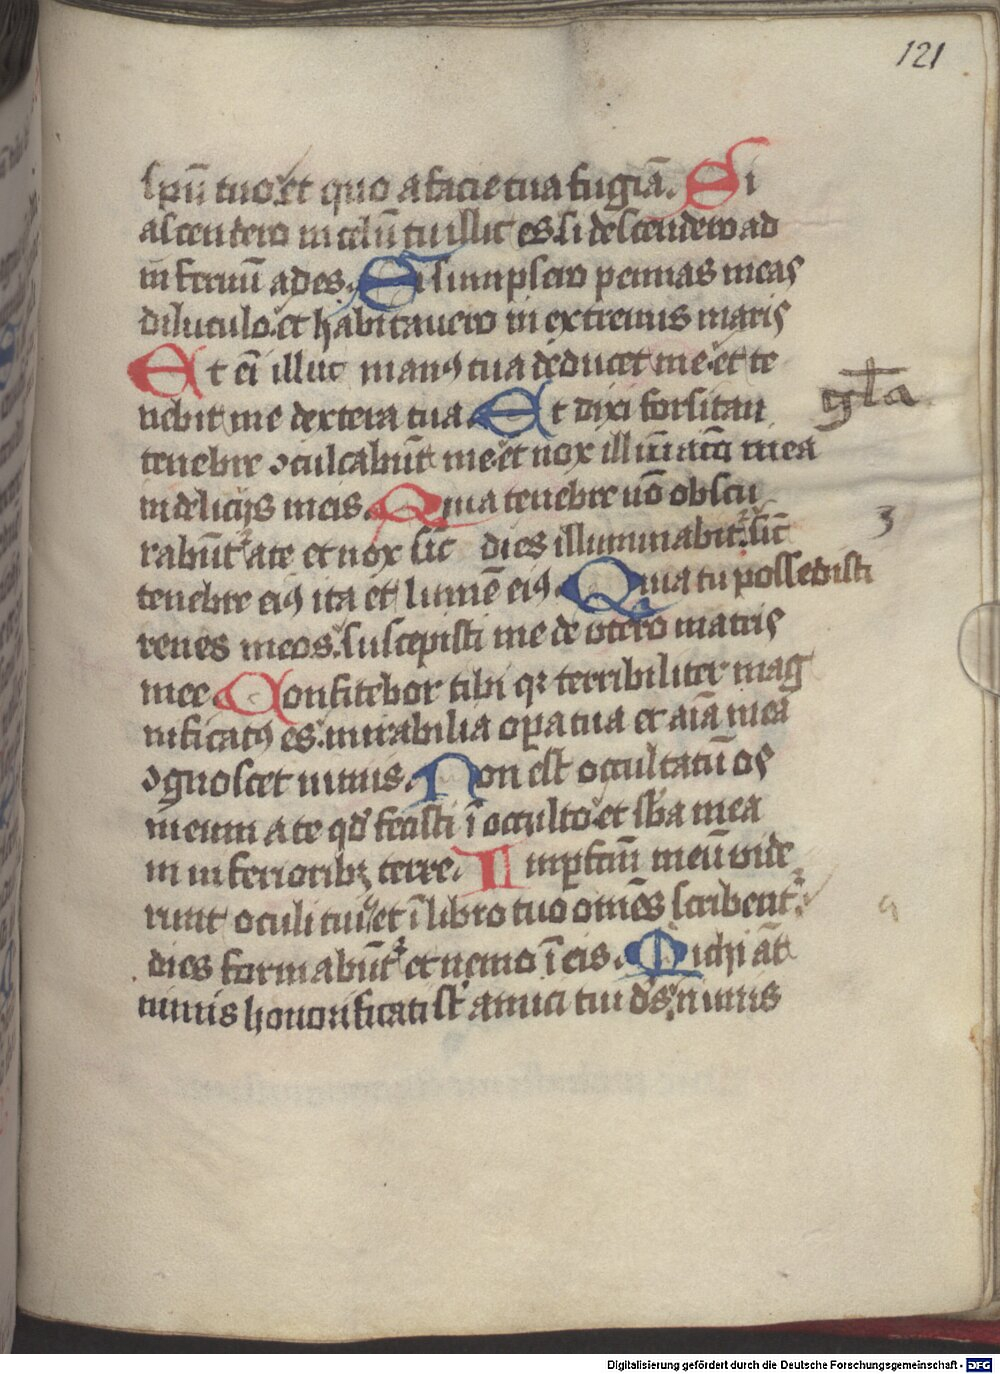 121
spū tuo. et quo a facie tua fugiā. Si
ascendero in celū tu illic es. si descendero ad
infernū ades. Si sumpsero pennas meas
diluculo. et habitauero in extremis maris
Et eī illuc manꝰ tua deducet me. et te
nebit me dextera tua. Et dixi forsitan
gla
tenebre ꝯculcabūt me. et nox illūiatō mea
in delicijs meis. Quia tenebre nō obscu
3
rabūt᷑ a te et nox sic̄ dies illuminabit᷑. sic̄
tenebre eiꝰ ita et lumē eiꝰ. Quia tu possedisti
renes meos. suscepisti me de vtero matris
mee. Confitebor tibi qꝛ terribiliter mag
nificatꝰ es. mirabilia oꝑa tua et aīa mea
ꝯgnoscet nimis. Non est occultatū os
meum a te qd̓ fecisti ī occulto. et sb̄a mea
in inferioribꝫ terre. Inꝑfcm̄ meū vide
runt oculi tui. et ī libro tuo om̄es scribent᷑.
dies formabūt᷑ et nemo ī eis. Michi āt
nimis honorificati st̄ amici tui ds̄. nimis
Digitalisierung gefördert durch die Deutsche Forschungsgemeinschaft - DFG